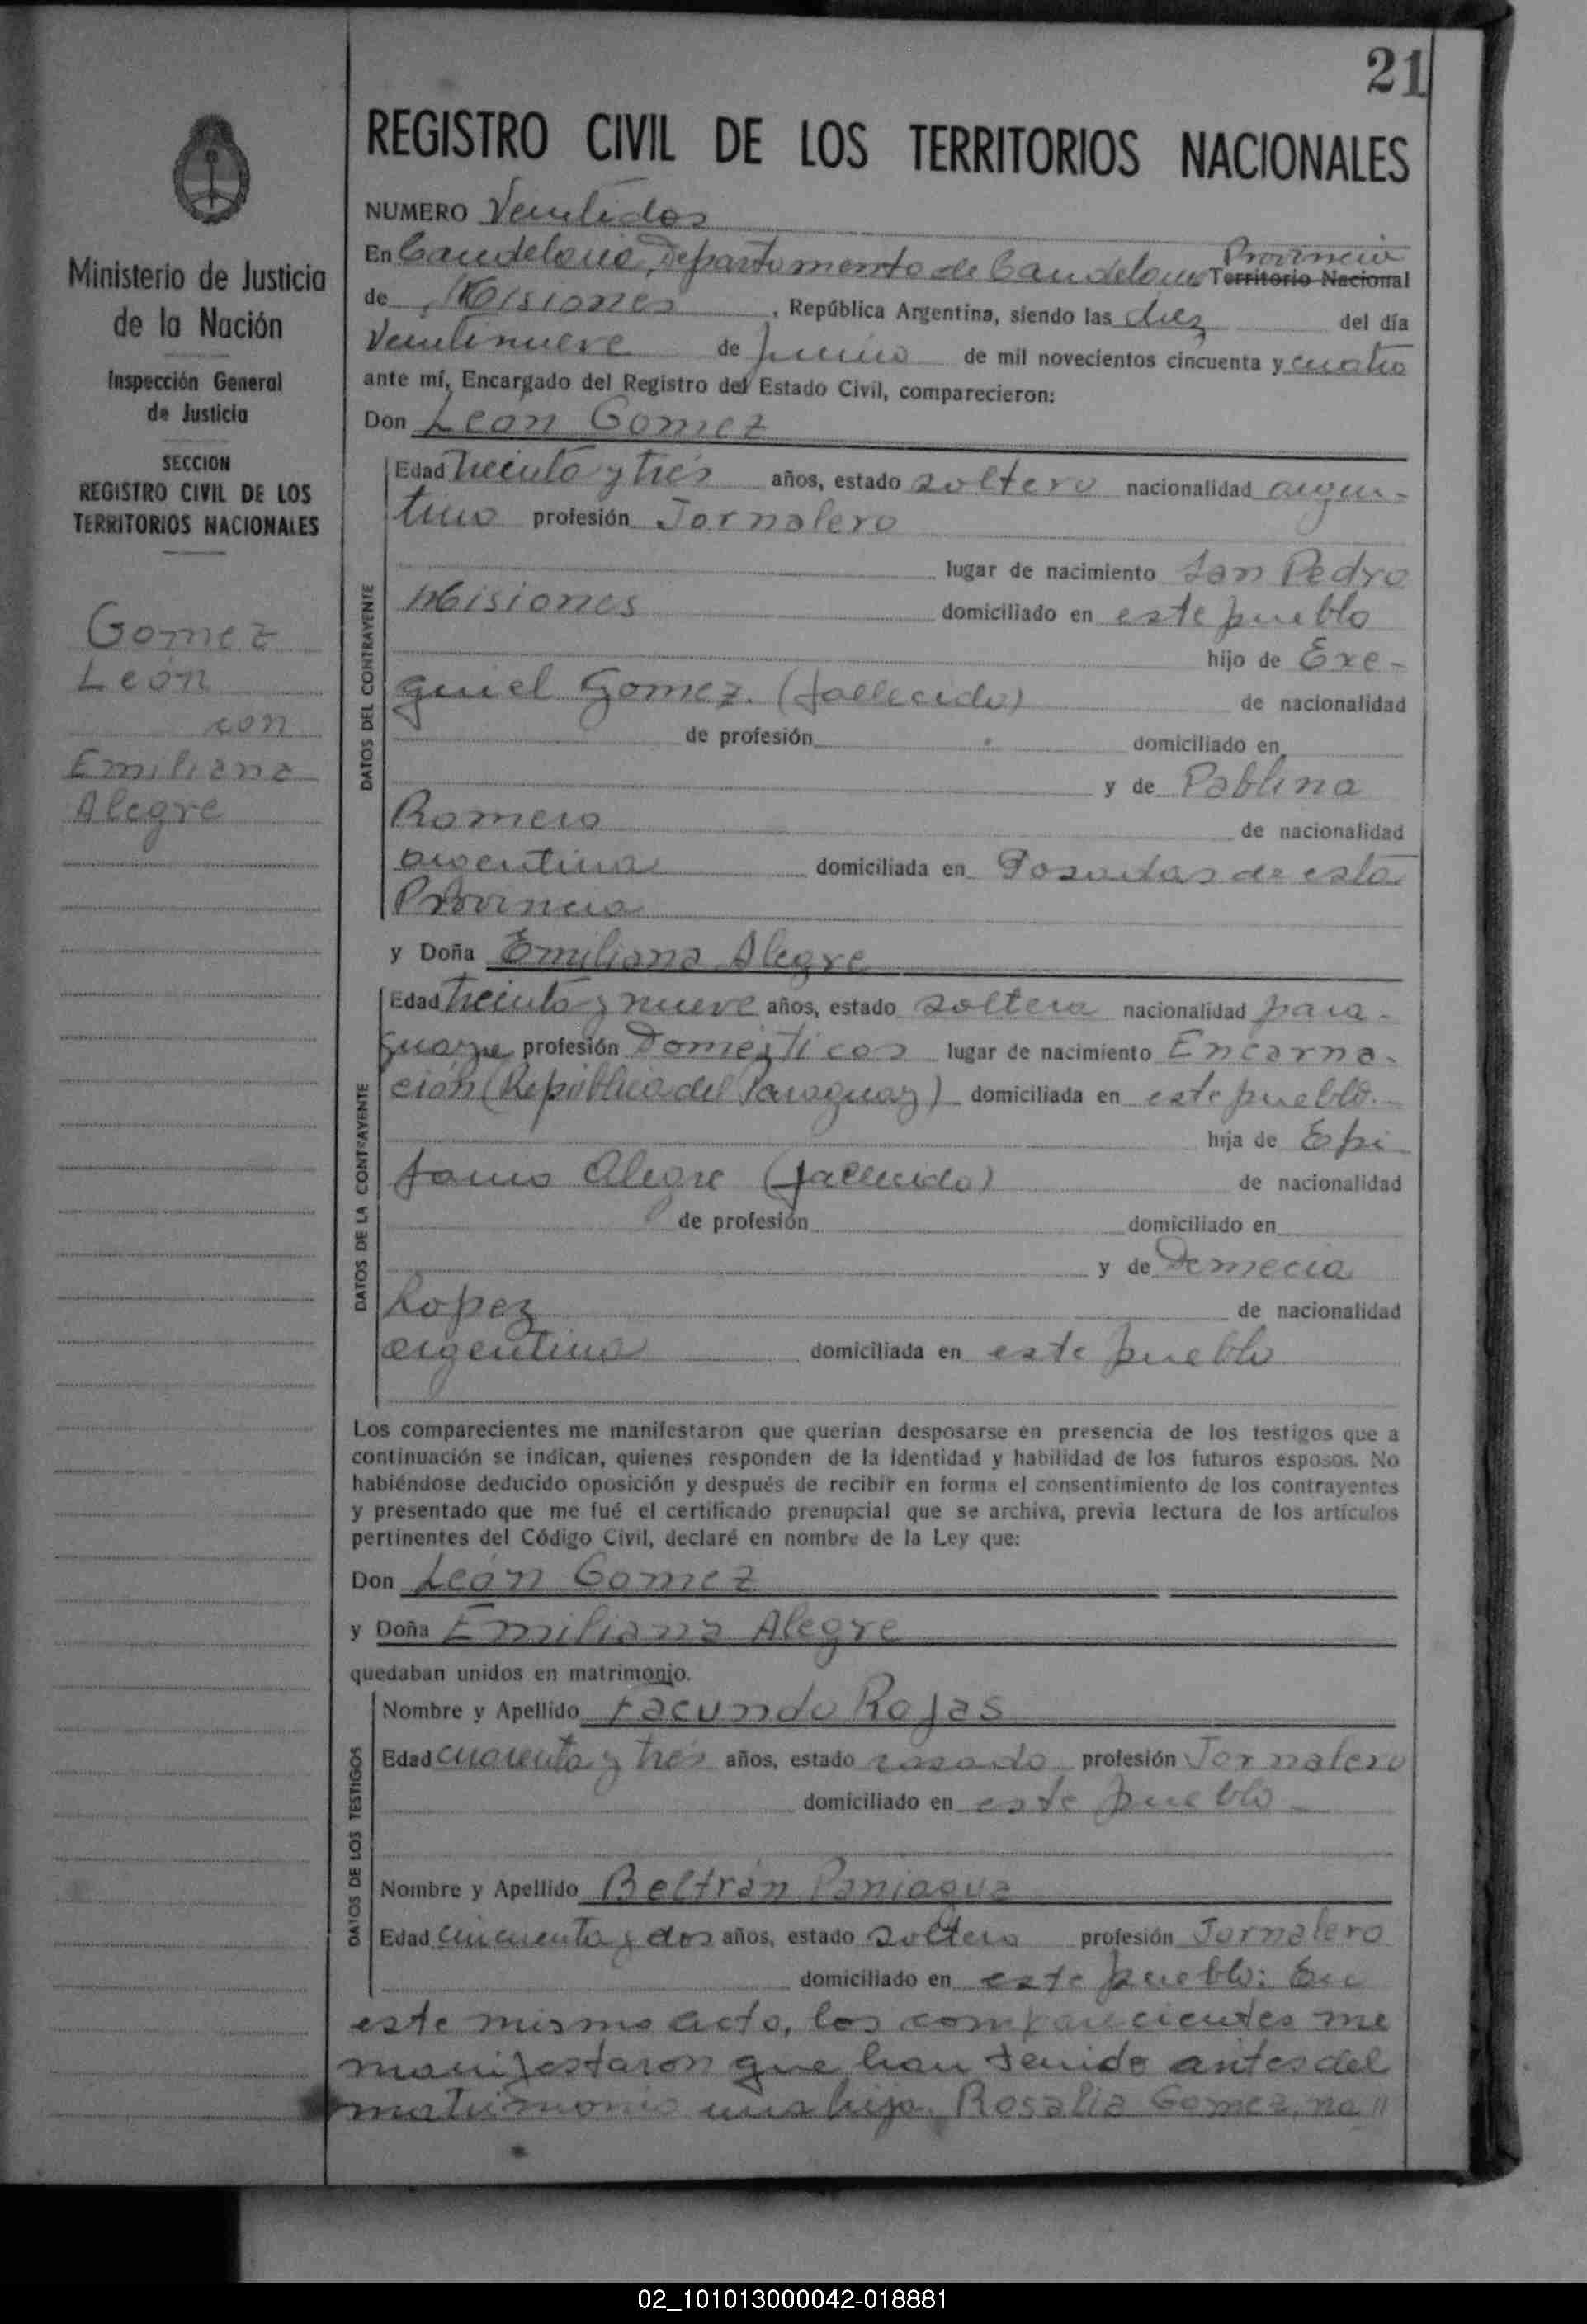 21
REGISTRO CIVIL DE LOS TERRITORIOS NACIONALES
Ministerio de Justicia
de la Nación
Inspección General
de Justicia
SECCION
REGISTRO CIVIL DE LOS
TERRITORIOS NACIONALES
Gomez
León
con
Emiliana
Alegre
NUMERO Veintidos
Provincia
En Candelaria, Departamento de Candelaria Territorio Nacional
de Misiones, República Argentina, siendo las diez del día
veintinueve de junio de mil novecientos cincuenta y cuatro
ante mí, Encargado del Registro del Estado Civil, comparecieron:
Don León Gomez
DATOS DEL CONTRAYENTE
Edad treinta y tres años, estado soltero nacionalidad argen-
tino profesión Jornalero
lugar de nacimiento San Pedro
Misiones domiciliado en este pueblo
hijo de Exe-
quiel Gomez. (fallecido) de nacionalidad
de profesión domiciliado en
y de Pablina
Romero de nacionalidad
argentina domiciliada en Posadas de esta
Provincia
y Doña Emiliana Alegre
DATOS DE LA CONTRAYENTE
Edad treinta y nueve años, estado soltera nacionalidad para-
guaya profesión Domésticos lugar de nacimiento Encarna-
ción (República del Paraguay) domiciliada en este pueblo.
hija de Epi
fanio Alegre (fallecido) de nacionalidad
de profesión domiciliado en
y de Demecia
Lopez de nacionalidad
argentina domiciliada en este pueblo
Los comparecientes me manifestaron que querían desposarse en presencia de los testigos que a
continuación se indican, quienes responden de la identidad y habilidad de los futuros esposos. No
habiéndose deducido oposición y después de recibir en forma el consentimiento de los contrayentes
y presentado que me fué el certificado prenupcial que se archiva, previa lectura de los artículos
pertinentes del Código Civil, declaré en nombre de la Ley que:
Don León Gomez
y Doña Emiliana Alegre
quedaban unidos en matrimonio.
DATOS DE LOS TESTIGOS
Nombre y Apellido Facundo Rojas
Edad cuarenta y tres años, estado casado profesión Jornalero
domiciliado en este pueblo
Nombre y Apellido Beltrán Paniagua
Edad cincuenta y dos años, estado soltero profesión Jornalero
domiciliado en este pueblo: En
este mismo acto, los comparecientes me
manifestaron que han tenido antes del
matrimonio una hija, Rosalia Gomez, na"
02_101013000042-018881